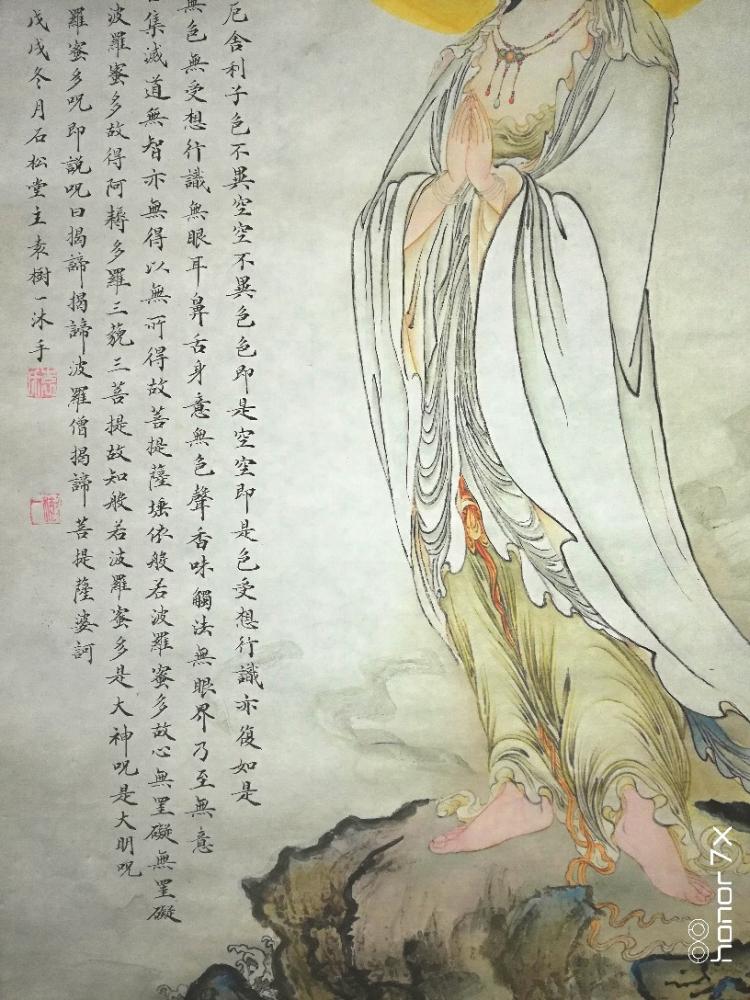 厄舍利子色不異空空不異色色即是空空即是色受想行識亦復如是
無色無受想行識無眼耳鼻舌身意無色聲香味觸法無眼界乃至無意
集滅道無智亦無得以無所得故菩提薩埵依般若波羅蜜多故心無罣礙無罣礙
波羅蜜多故得阿耨多羅三藐三菩提故知般若波羅蜜多是大神呪是大明呪
羅蜜多呪即説呪曰揭諦揭諦波羅僧揭諦菩提薩婆訶
戊戌冬月石松堂主袁樹一沐手
honor 7X